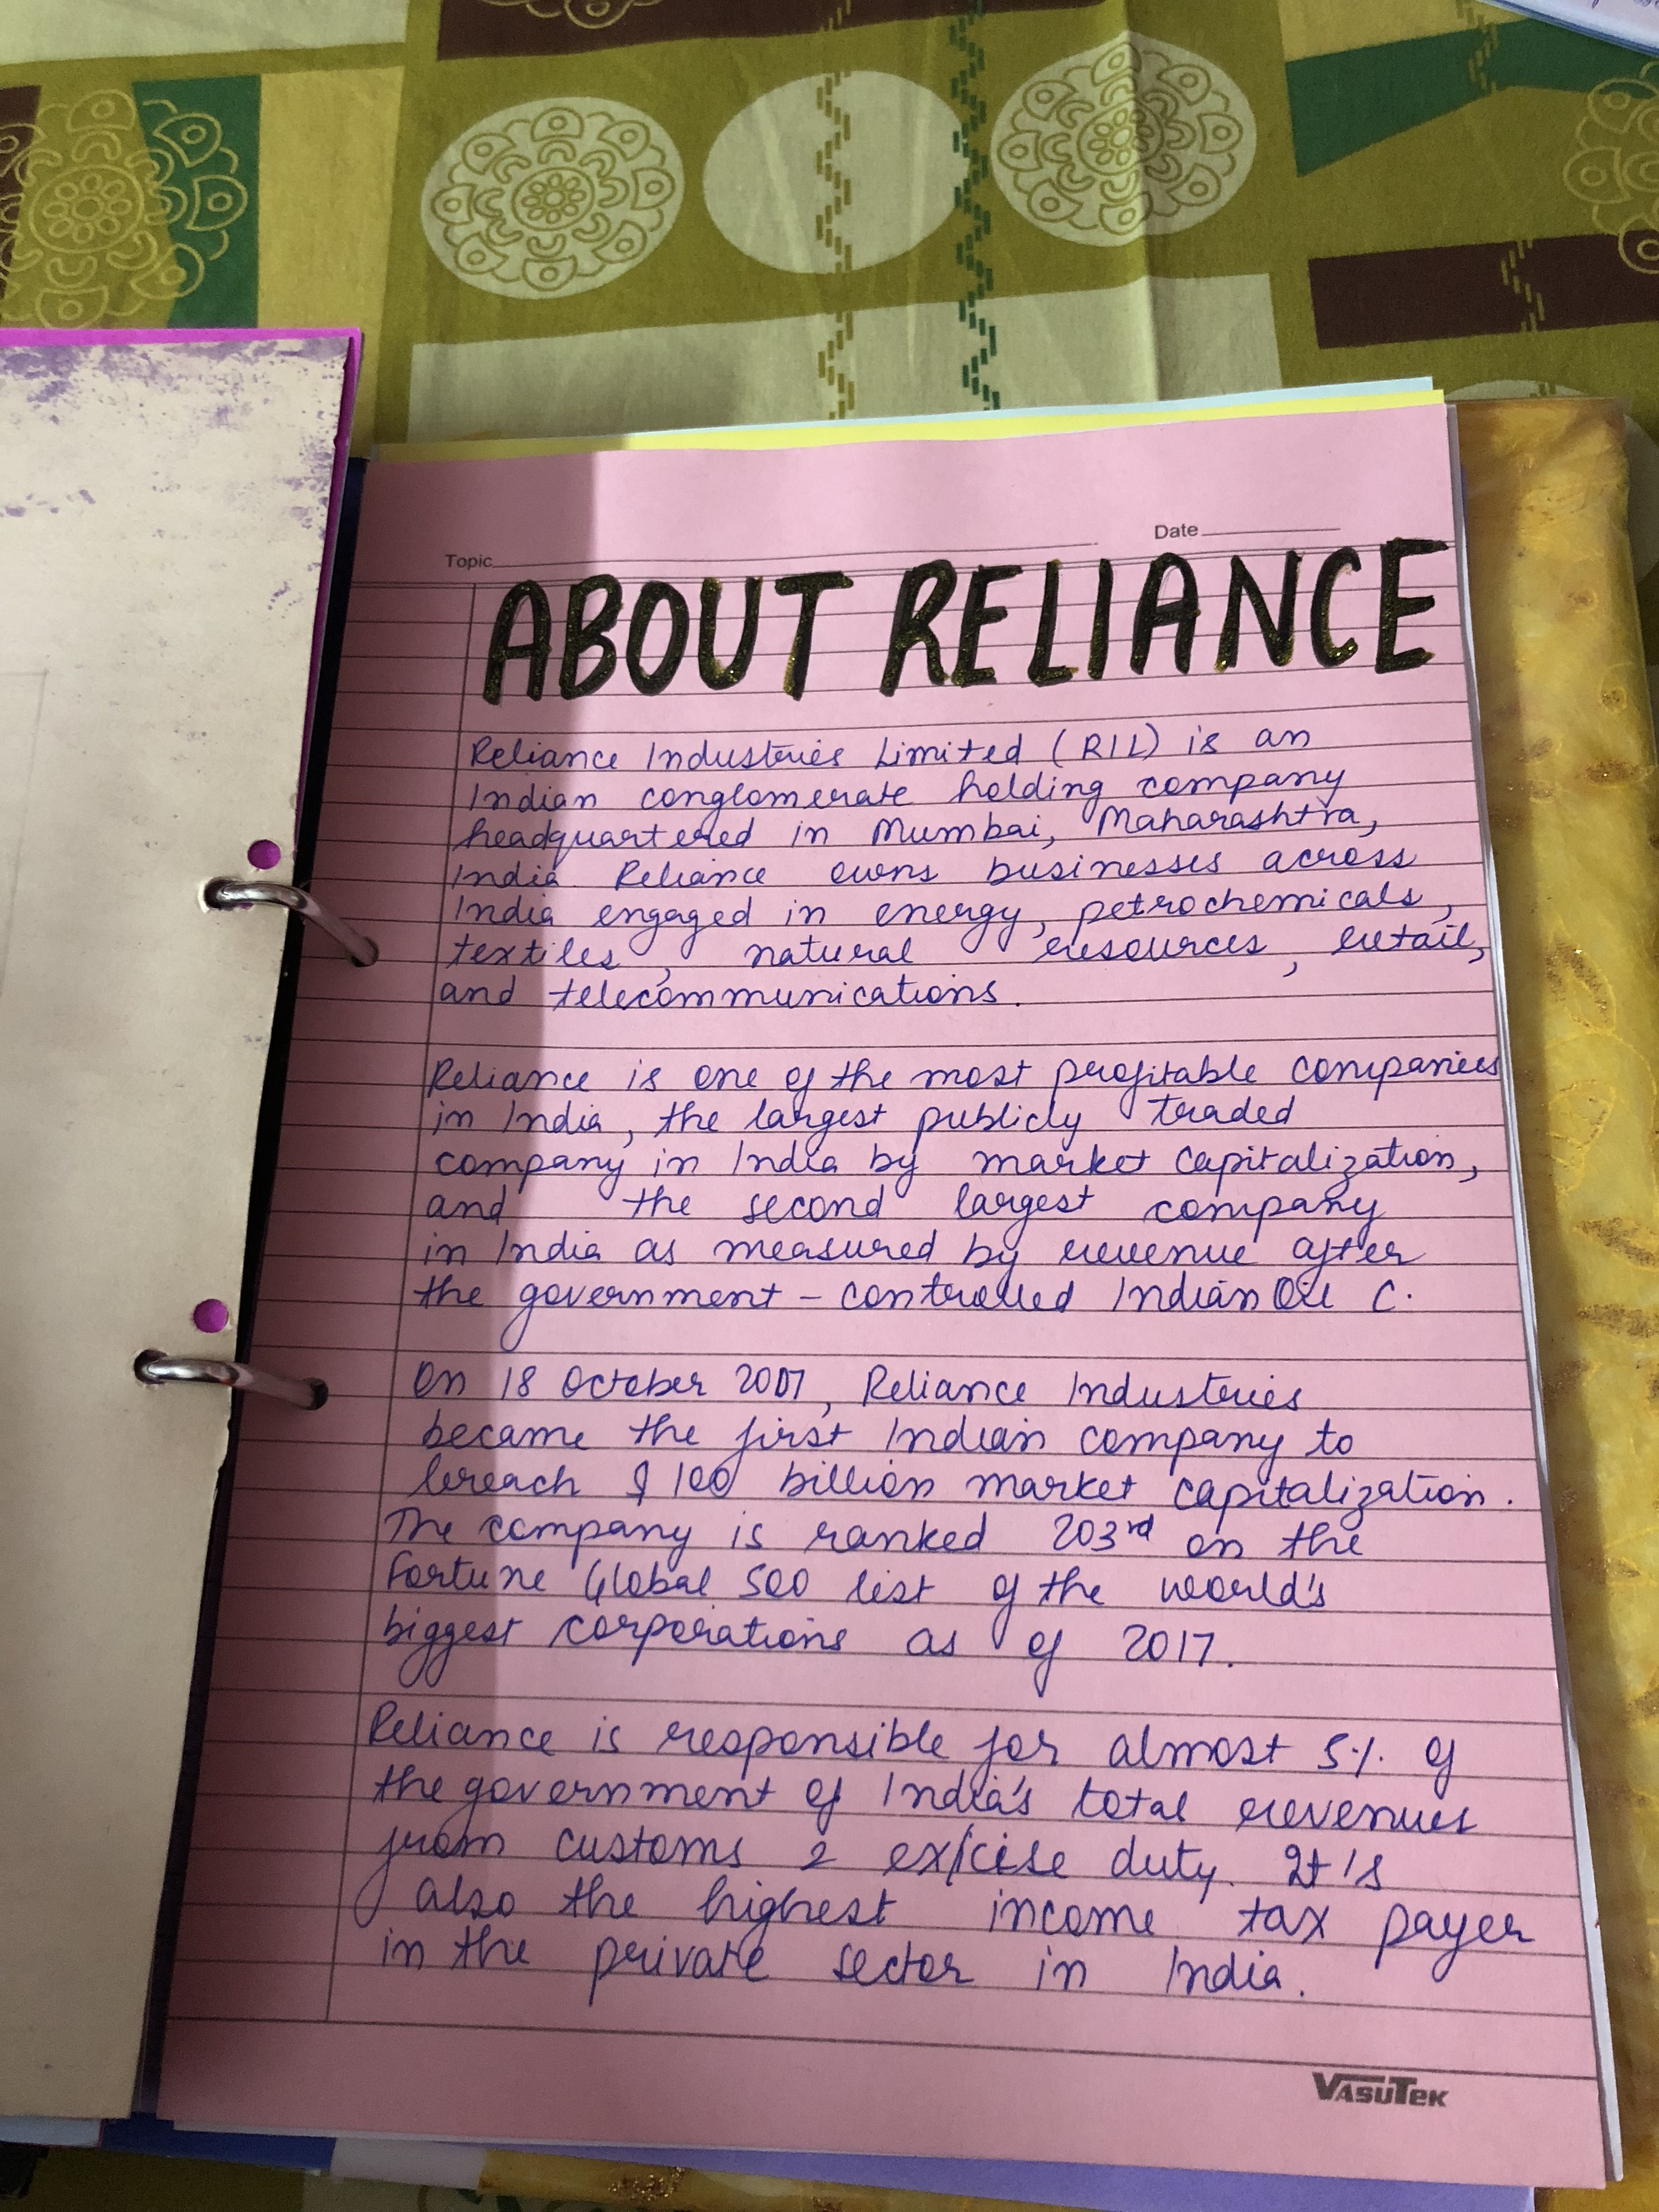 Date
Topic
ABOUT RELIANCE
Reliance Industries Limited (RIL) is an
Indian conglomerate holding company
headquartered in Mumbai, Maharashtra,
India. Reliance owns businesses across
India engaged in energy, petrochemicals,
textiles, natural resources, retail,
and telecommunications.
Reliance is one of the most profitable companies
in India, the largest publicly traded
company in India by market capitalization,
and the second largest company
in India as measured by revenue after
the government - controlled Indian Oil C.
On 18 October 2007, Reliance Industries
became the first Indian company to
breach $ 100 billion market capitalization.
The company is ranked 203rd on the
Fortune Global 500 list of the world's
biggest corporations as of 2017.
Reliance is responsible for almost 5% of
the government of India's total revenues
from customs & excise duty. It's
also the highest income tax payer
in the private sector in India.
VASUTEK